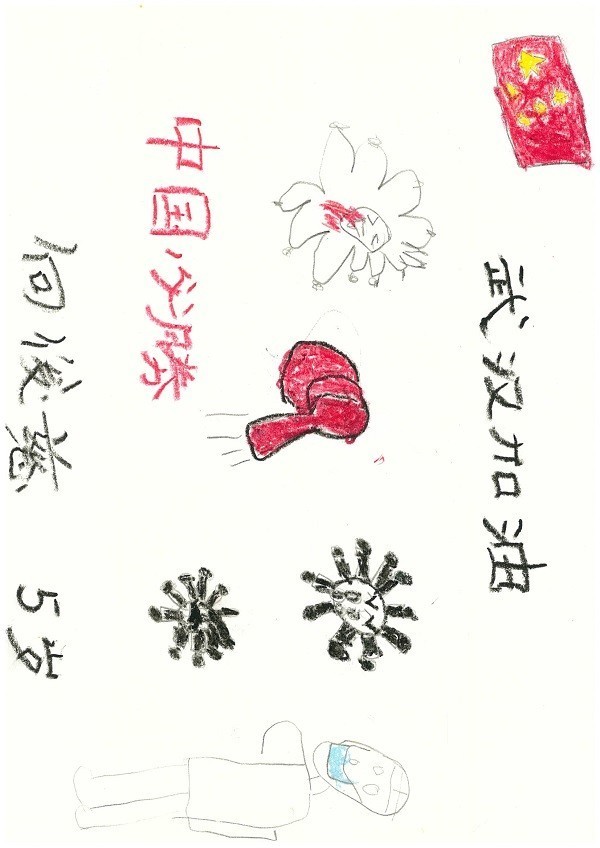 武汉加油
中国必勝
何俊
5岁